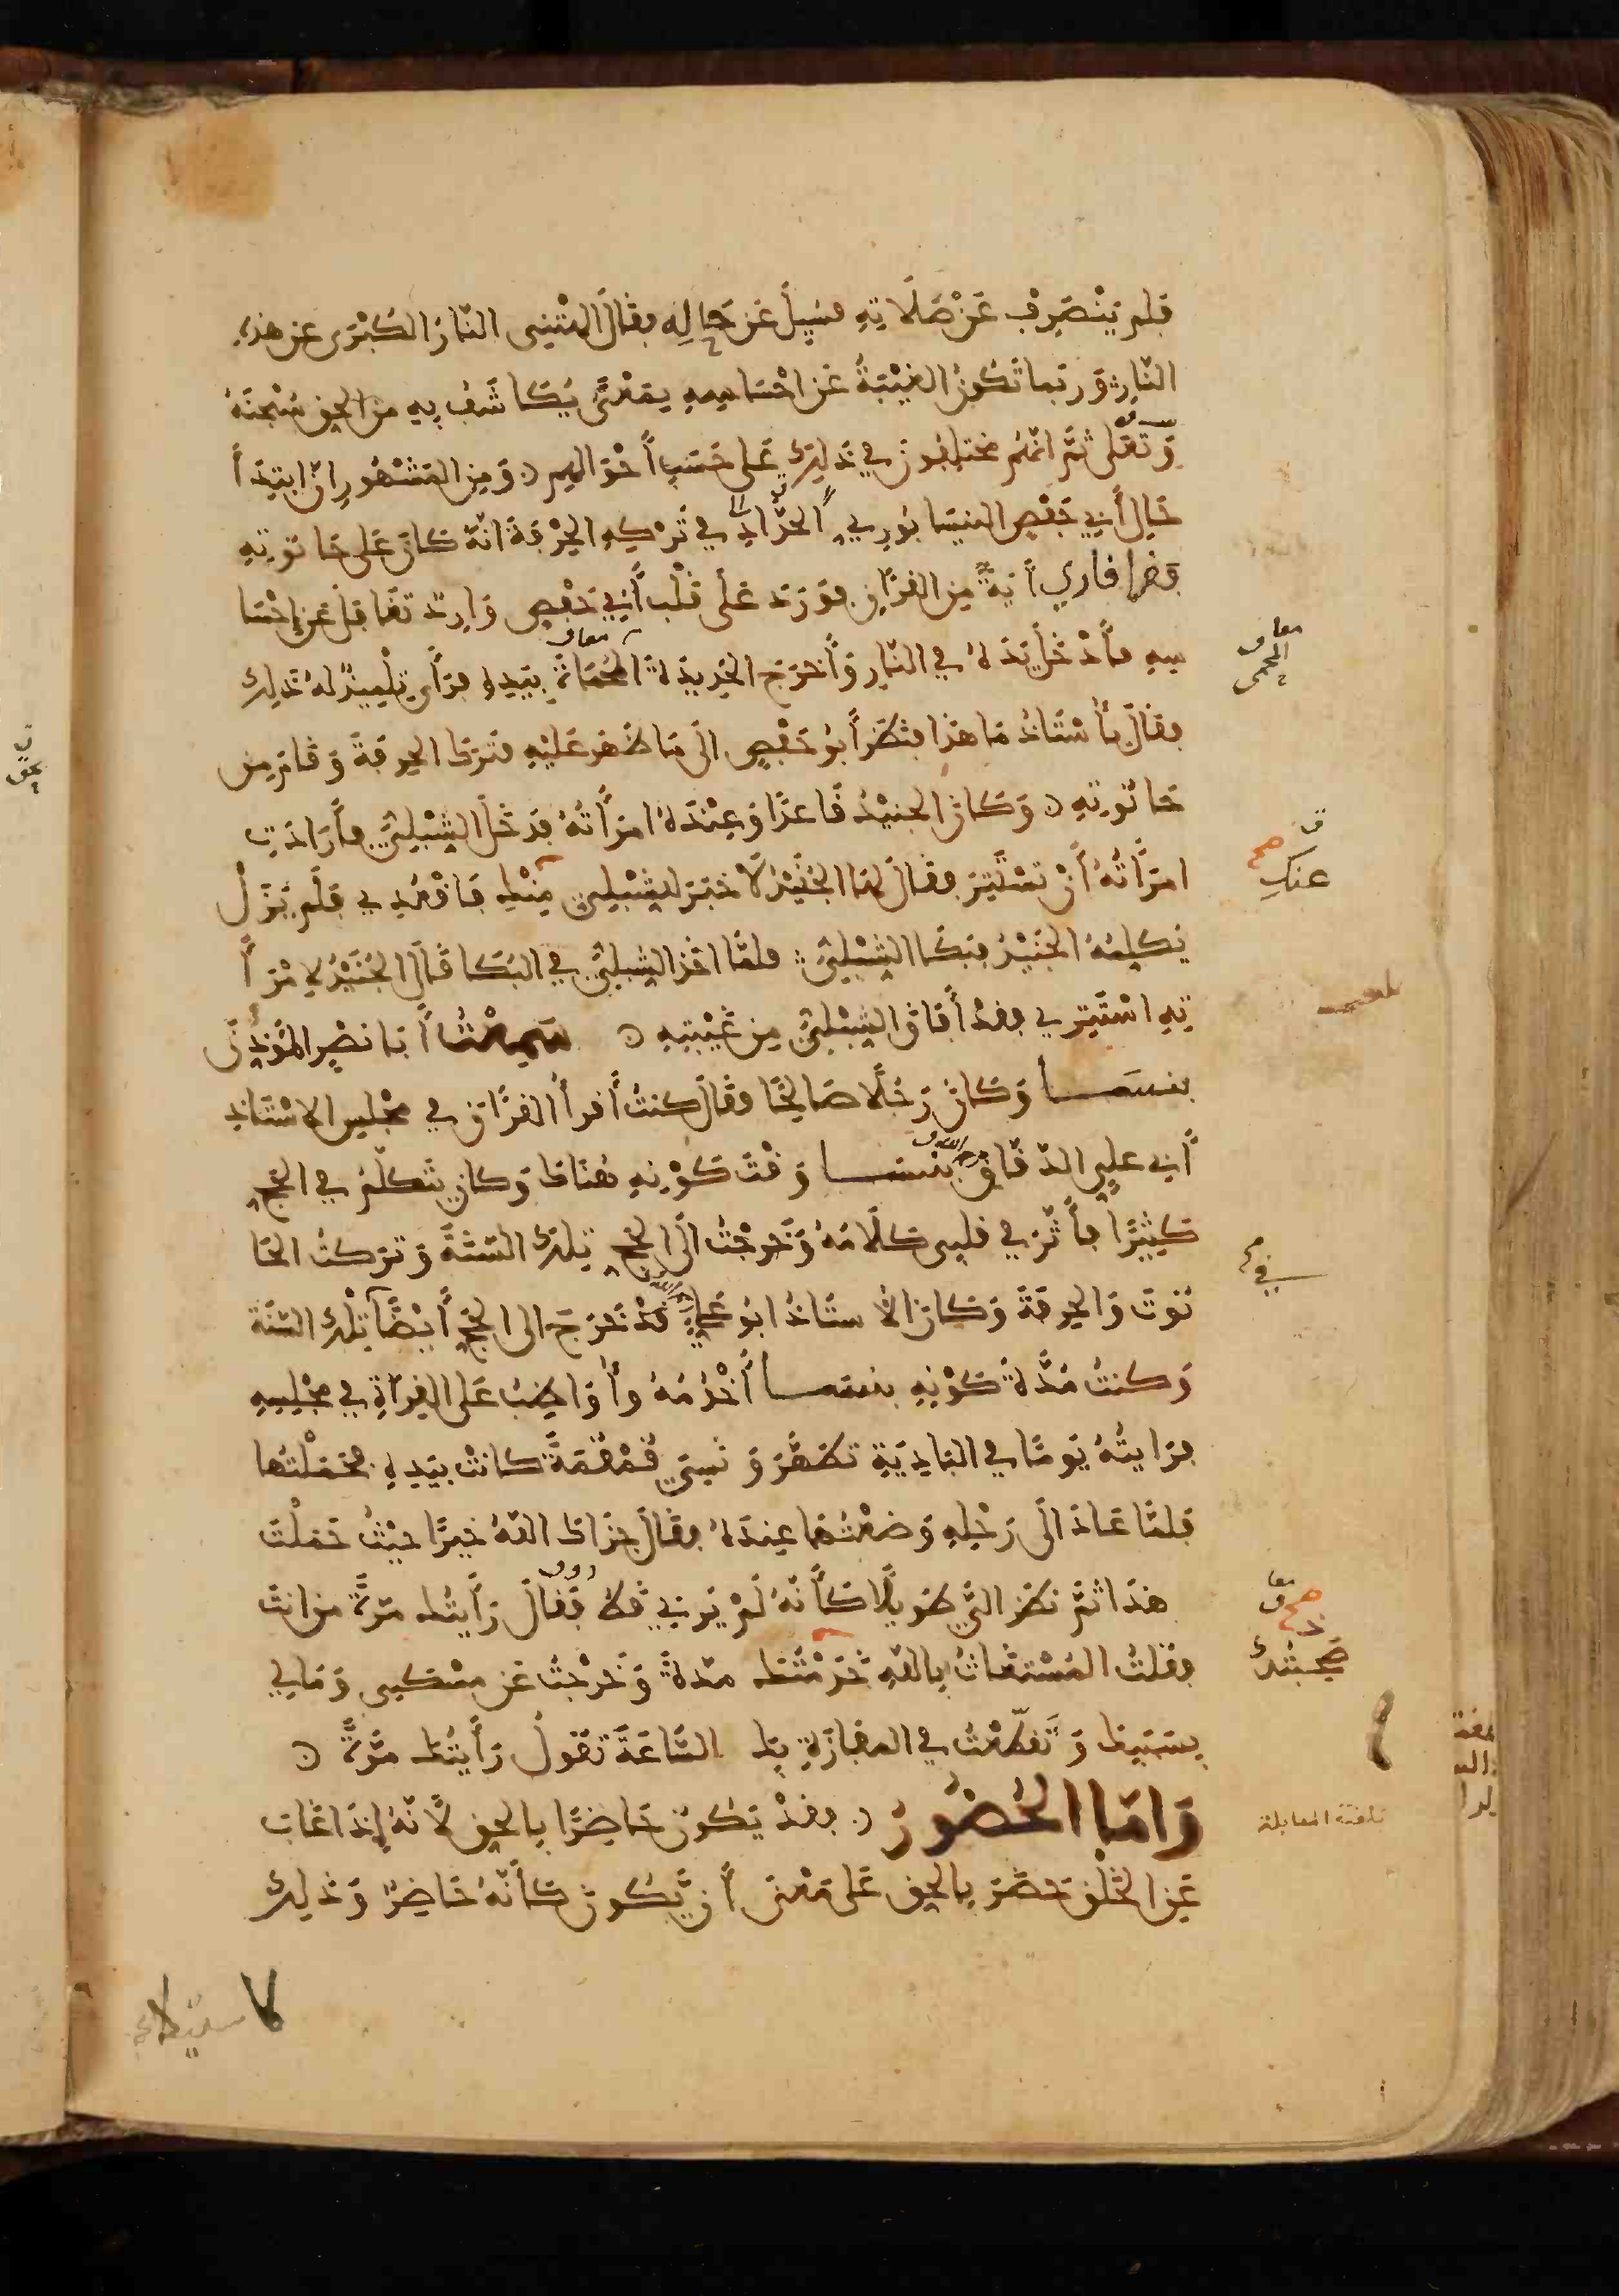 فلم ينْصَرِف عَن صَلَاتِهِ فسُيِلَ عَن حَالِهِ فقالَ الهَتْني النّارُ الكُبْرى عن هذه
النّارِ وَربّما تكُونُ الغَيْبَةُ عَن احْسَاسِهِ بِمَعْنًى يُكَاشَفُ بِهِ من الحق سُبْحنَهُ
وَتَعَلى ثُمَّ انّهُم مختلِفُونَ في ذلِكَ عَلى حَسَبِ أَحْوَالهِم وَمِن المَشْهُورِ انّ ابتِدَأَ
حَالِ أَبي حَفْصٍ النيسَابُورِي الحَدَّادِ في تَرْكِهِ الحِرْفَةَ انّهُ كَانَ عَلى حَانُوتِهِ
فقرا قاري أَيةً مِن القرأَن فوَرَدَ عَلى قَلْبِ أَبي حَفْصٍ وَارِدٌ تغَافَلَ عَن إِحْسَا
سِهِ فأَدْخَلَ يَدَهُ في النّارِ وَأَخرَجَ الحَدِيدَةَ المُحْمَاةَ بِيَدِهِ فرَأَى تِلْمِيذٌ لهُ ذلِكَ
فقالَ يأُسْتَاذُ مَا هَذا فنَظَرَ أَبُو حَفْصٍ الَى مَا ظَهَرَ عَليْهِ فتَرَكَ الحِرفَةَ وَقامَ مِن
حَانُوتِهِ وَكَانَ الجنَيْدُ قَاعدًا وَعِنْدَهُ امرَأَتُهُ فدَخَلَ الشّبْلِيُّ فأَرَادَتِ
امرَأَتُهُ أَنْ تَسْتَتِرَ فقالَ لهَا الجُنَيْدُ لَا خبَرَ للشبْلِي مِنْكِ فَاقْعُدِي فلَم يَزَلْ
يُكلِمُهُ الجُنَيْدُ فبَكَا الشِّبْلِيُّ فلمَّا اخَذَ الشّبْلِيُّ في البُكَا قَالَ الجُنَيْدُ لِامْرَأَ
تِهِ اسْتَتِرِي فقدْ أَفَاقَ الشِّبْلِيُّ مِن غَيْبَتِهِ سَمِعْتُ أَبَا نَصْرٍ المُؤَذِّنَ
بنيسَابُورَ وَكَانَ رَجُلًا صَالِحًا فقالَ كنتُ أَقرأُ القرأَنَ في مجْلِسِ الاسْتَاذِ
أَبي عليٍ الدّقّاقِ بنيسَابُورَ وَقْتَ كَوْنِهِ هُنَاكَ وَكانَ يَتَكَلّمُ في الحَجّ
كَثِيرًا فأَثّرَ في قلبِي كَلَامُهُ وَخَرجْتُ الَى الحَجّ تِلكَ السّنَةَ وَترَكتُ الحَا
نُوتَ وَالحِرفَةَ وَكَانَ الاسْتَاذُ ابُو عَليّ رحمه الله قدْ خَرَجَ الى الحَجّ أَيْضًا تِلكَ السّنَةَ
وَكنتُ مُدَّةَ كَوْنِهِ بنيسَابُورَ أَخْدُمُهُ وأُوَاظِبُ عَلى القِراَةِ في مجْلِسِهِ
فرَايتُهُ يَومًا في البَادِيَةِ تَطَهَّرَ وَنَسِيَ قُمْقُمَةً كَانَتْ بِيَدِهِ فحَمَلْتُها
فلمّا عَادَ الَى رَحْلِهِ وَضَعْتُهَا عِندَهُ فقالَ جزَاكَ اللهُ خَيرًا حيْثُ حَمَلْتَ
هذَا ثمّ نَظَرَ اليَّ طَوِيلًا كأَنّهُ لَمْ يَرَني قطّ فَقالَ رَأَيتُكَ مَرَّةً من انتَ
فقلتُ المُسْتغَاثُ بِاللهِ خَدَمْتُكَ مُدّةً وَخَرجْتُ عَن مسْكني وَمَالِي
بِسَبَبِكَ وَتَقَطَّعْتُ في المفازَةِ بِكَ السّاعَةَ تقولُ رَأَيتُكَ مَرَّةً
وَامّا الحُضُورُ فقدْ يَكُونُ حَاضِرًا بِالحق لأَنّهُ إِذَا غَابَ
عَنِ الخَلْقِ حَضَرَ بِالحق عَلى مَعْنَى أَن يّكُونَ كأَنّهُ حَاضِرٌ وَذلِكَ
معا
المحمى
عنكِ
صح
في
صح
صَحِبْتُكَ
بلغت المقابلة